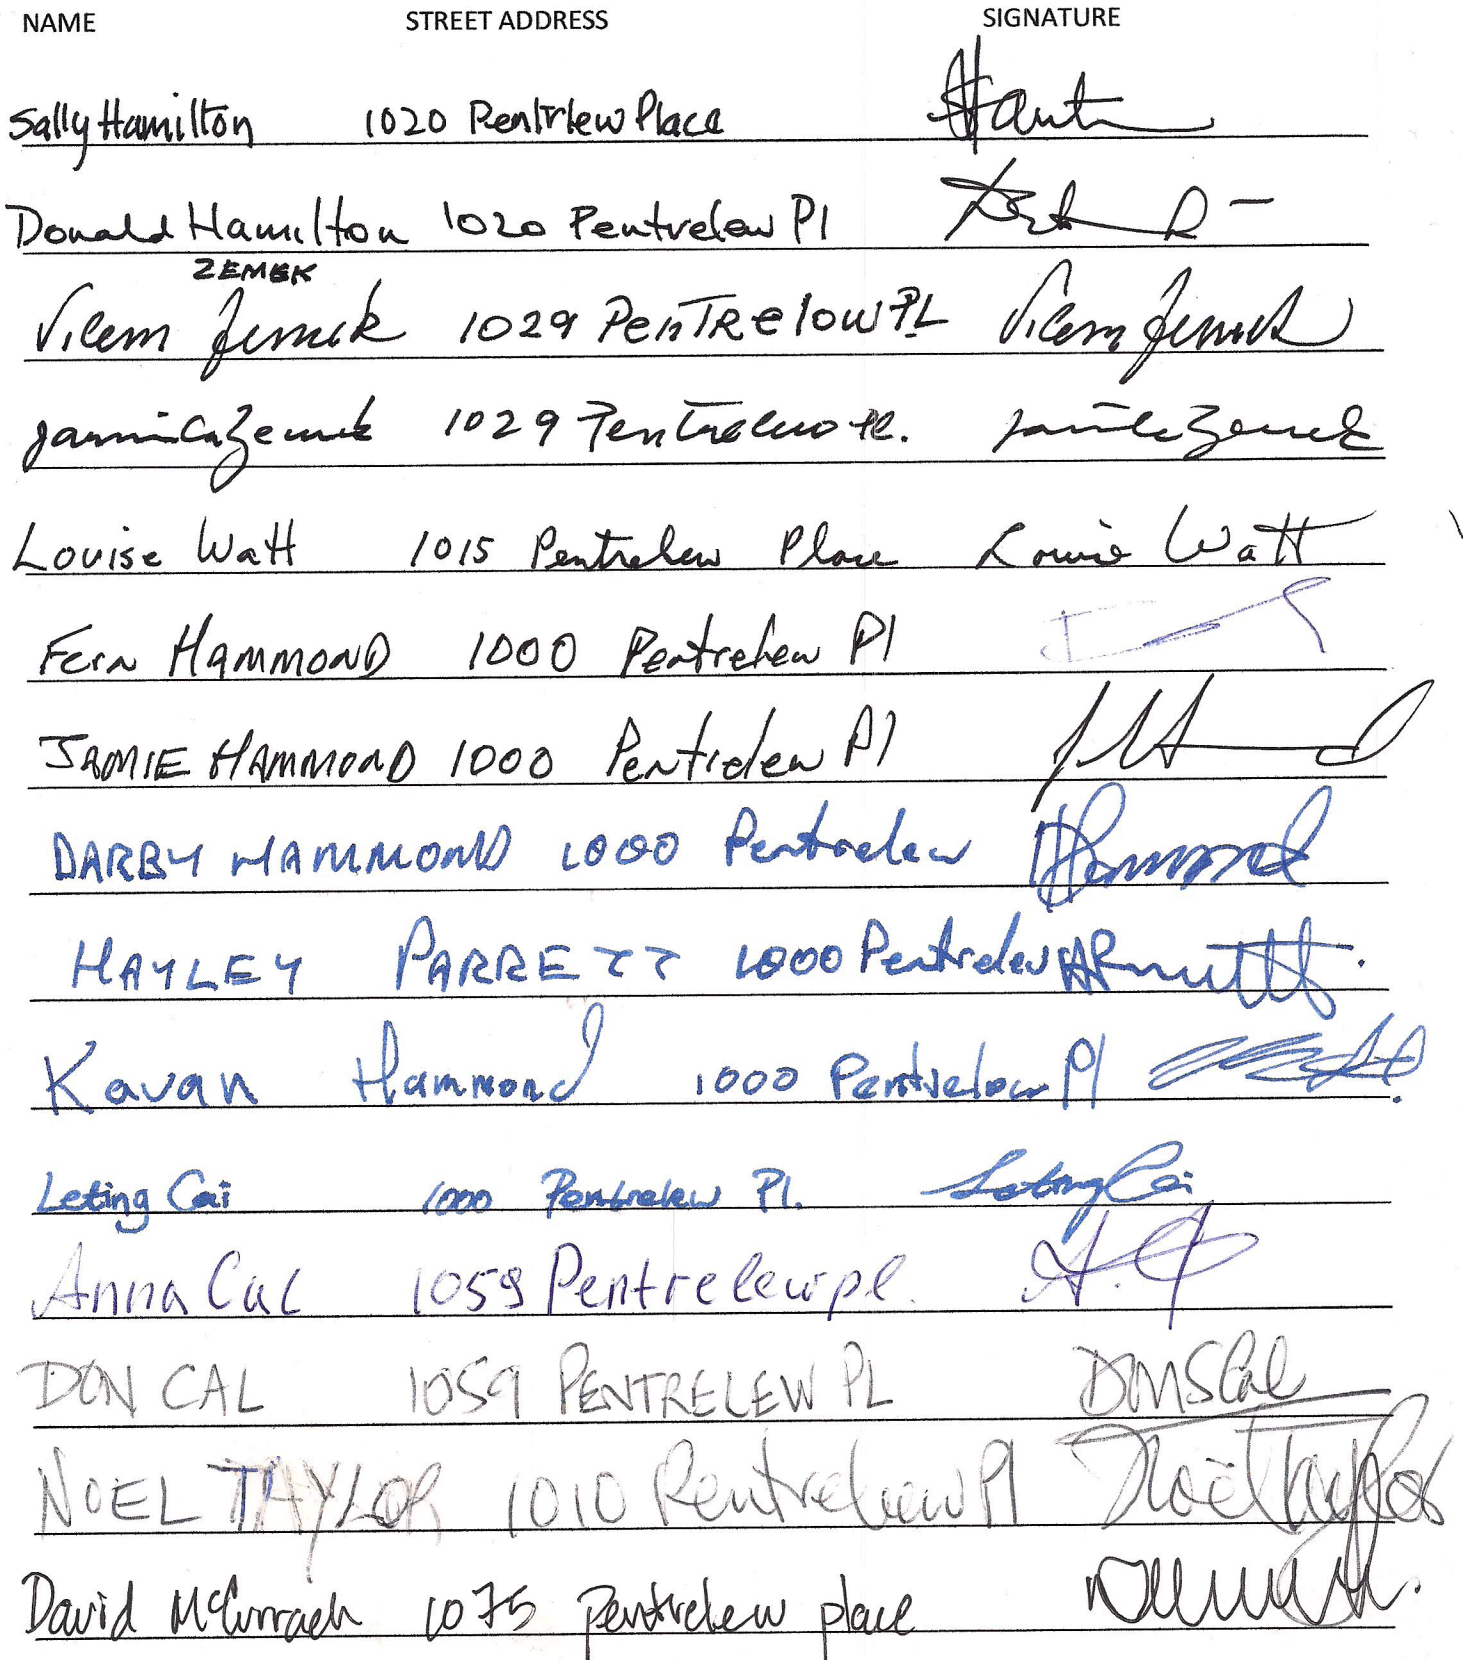 NAME STREET ADDRESS SIGNATURE
Sally Hamilton 1020 Pentrelew Place
Donald Hamilton 1020 Pentrelew Pl
ZEMEK
Vilem Zemek 1029 PENTRelow PL Vilem Zemek
Zemek 1029 Pentrelew Pl. Zemek
Louise Watt 1015 Pentrelew Place Louise Watt
Fern HAMMOND 1000 Pentrelew Pl
JAMIE HAMMOND 1000 Pentrelew Pl
DARBY HAMMOND 1000 Pentrelew Hammond
HAYLEY PARRETT 1000 Pentrelew
Kavan Hammond 1000 Pentrelew Pl
Leting Cai 1000 Pentrelew Pl. Leting Cai
Anna Cal 1059 Pentrelew pl.
DON CAL 1059 PENTRELEW PL Don S Cal
NOEL TAYLOR 1010 Pentrelew Pl Noel Taylor
David McCurrach 1075 pentrelew place